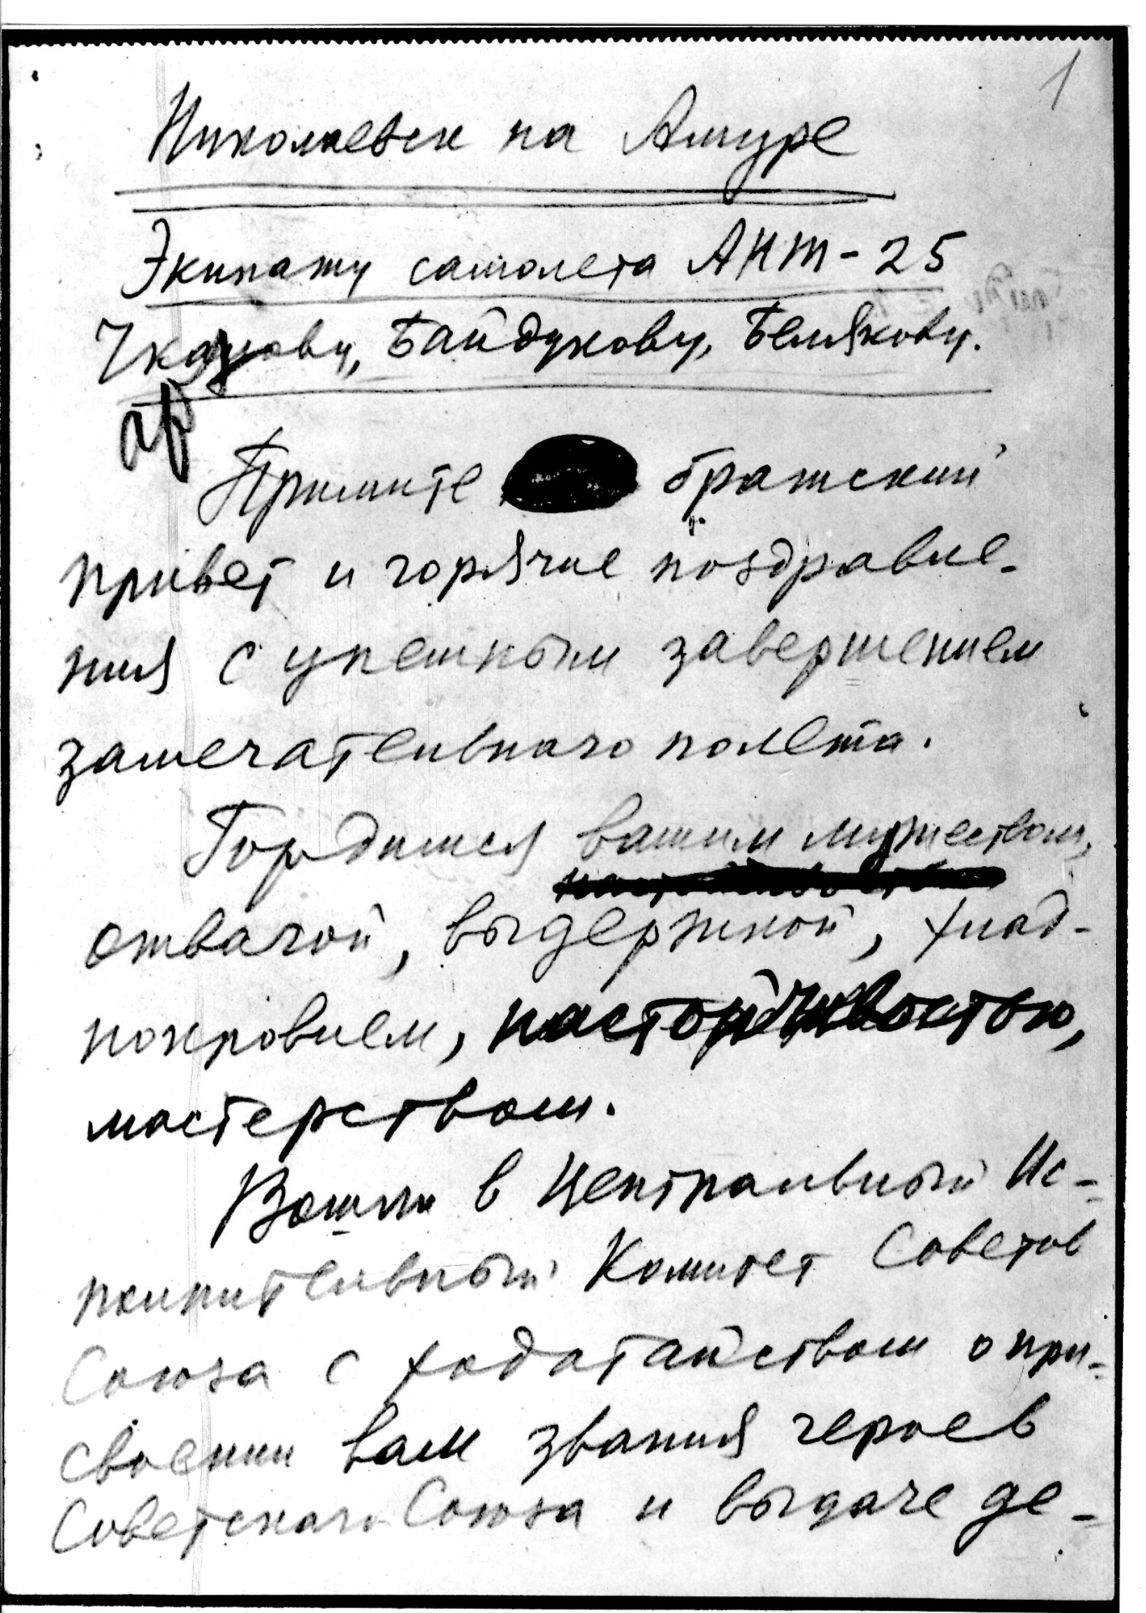 1
Николаевск на Амуре
Экипажу самолета АНТ-25
Чкалову, Байдукову, Белякову.
Примите братский
привет и горячие поздравле-
ния с успешным завершением
замечательного полета.
Гордимся вашим мужеством,
отвагой, выдержкой, хлад-
нокровием, настойчивостью,
мастерством.
Вошли в Центральный Ис-
полнительный Комитет Советов
Союза с ходатайством о при-
своении вам звания героев
Советского Союза и выдаче де-